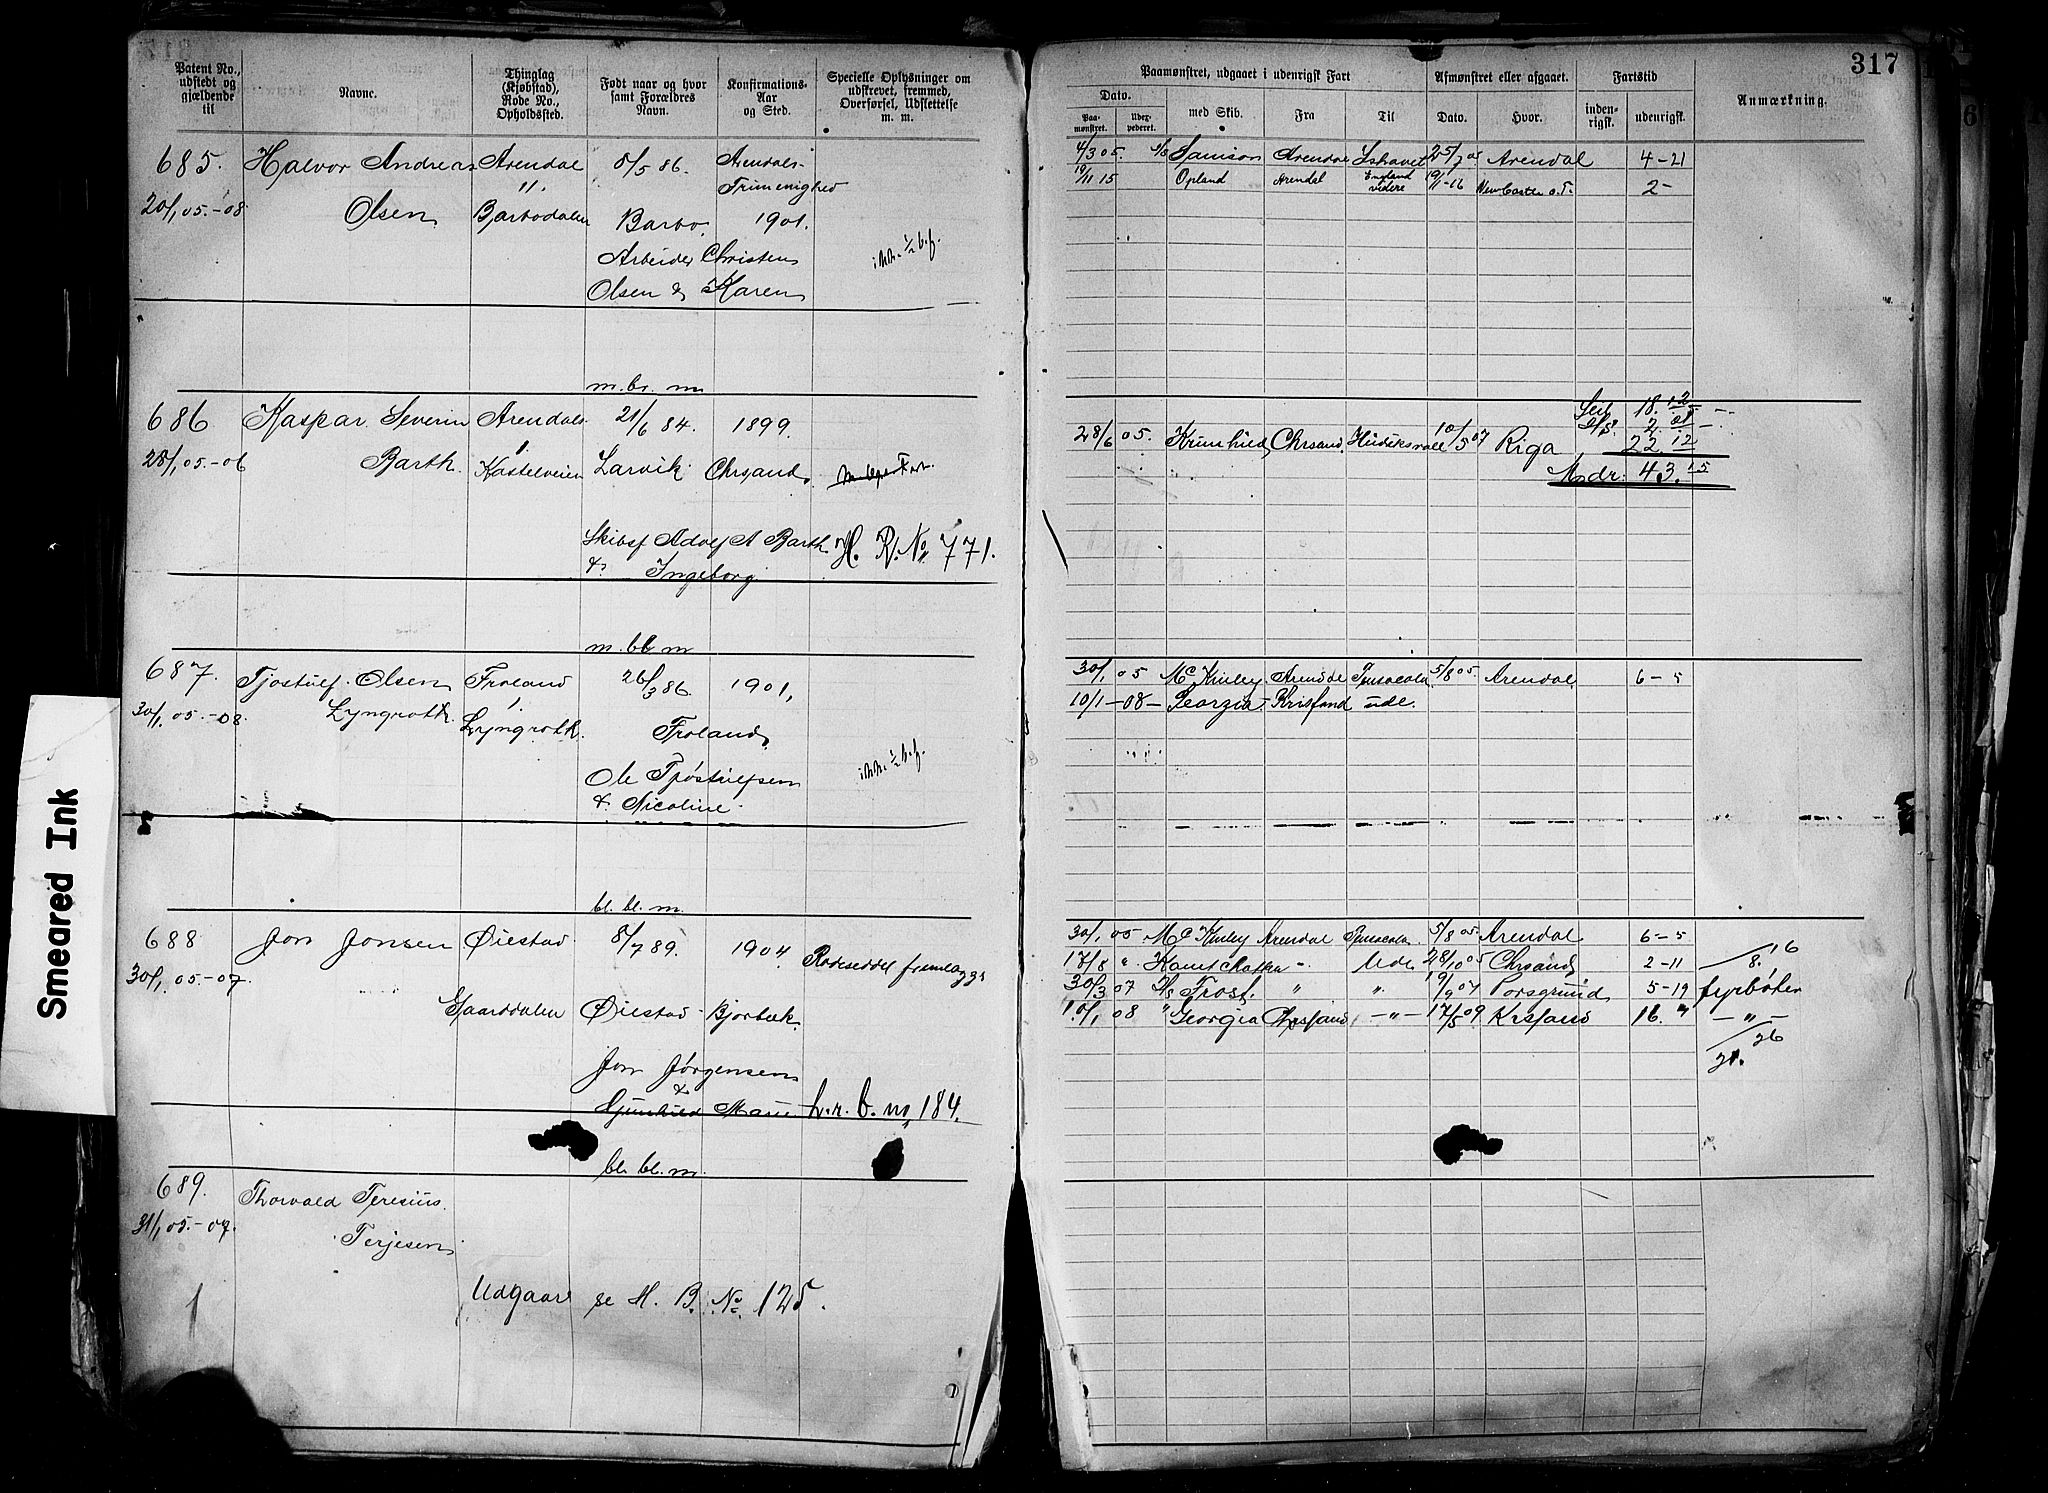 317
Patent No., udstedt og gjældende til
Navn.
Thinglag (Kjøbstad), Rode No., Opholdssted.
Født naar og hvor samt Forældres Navn.
Konfirmations-Aar og Sted.
Specielle Oplysninger om udskrevet, fremmed, Overførsel, Udslettelse m. m.
Paamønstret, udgaaet i udenrigsk Fart
Afmønstret eller afgaaet.
Fartstid
Anmærkning.
Dato.
Paa-mønstret.
Udex-pederet.
med Skib.
Fra
Til
Dato.
Hvor.
inden-rigsk.
udenrigsk.
685.
20/1 05.-08
Halvor Andreas
Olsen
Arendal
"
Barbodalen
8/5 86.
Barbo.
Arbeider Christen
Olsen & Karen
Arendals-
Trimenighed
1901.
4/3 05. Samson Arendal Ishavet 25/7 05 Arendal 4-21
19/11 15 Opland Arendal England videre 19/1-16 New Castle o.T. 2-
m. br. m
686
28/1 05.-06
Kaspar Severin
Barth.
Arendal.
Kastelveien
21/6 84.
Larvik
Skibsf Adolf A Barth
& Ingeborg
1899.
Chrsand.
H. R. No 771.
28/6 05. Krimhild Chrsand. Hudiksvall 10/5 07 Riga
Seil 18. 12
2.
22. 12
Mdr. 43. 15
m. bl. m
687.
30/1 05.-08.
Tjostulf Olsen
Lyngroth.
Froland
Lyngroth.
26/3 86.
Froland.
Ole Tjøstulfsen
& Nicoline.
1901,
30/1 05 Mc Kinley Arendal Pensacola 5/8 05. Arendal 6-5
10/1-08- Georgia - Krissand ude.
bl. bl. m.
688
30/1 05.-07.
Jon Jonsen
Øiestad
Gaarddalen
8/7 89.
Øiestad
Jon Jørgensen
&
Gunhild Marie
1904
Bjorbæk.
Rodeseddel fremlægges
h. r. b. no 184.
30/1 05 Mc Kinley Arendal Pensacola 5/8 05 Arendal 6-5
17/8 " Kamtchatka " Ude 28/10 05 Chrsand 2-11 8. 16
30/3 07 D/s Frost. " " 19/9 07 Porsgrund 5-19 fyrbøter
10/1 08 " Georgia Chrsand, -"- 17/5 09 Krssand 16. " -"-
21. 26
bl. bl. m.
689.
31/1 05.-07.
Thorvald Teresius
Terjesen
Udgaar se H. B. No. 125.
Smeared Ink